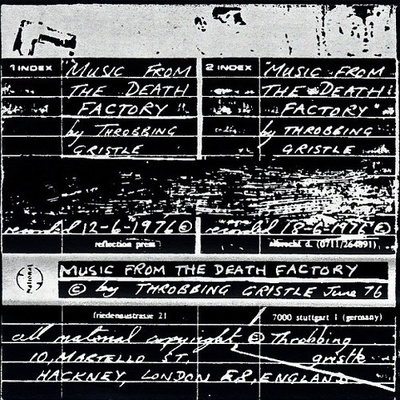 1 INDEX
"MUSIC FROM
THE DEATH
FACTORY"
by THROBBING
GRISTLE
2 INDEX
"MUSIC FROM
THE DEATH
FACTORY"
by THROBBING
GRISTLE
recorded 12-6-1976 ©
recorded 18-6-1976 ©
reflection press
albrecht d. (0711/264891)
National
MUSIC FROM THE DEATH FACTORY
© by THROBBING GRISTLE June 76
friedenaustrasse 21
7000 stuttgart 1 (germany)
all material copyright © Throbbing
gristle
10, MARTELLO ST,
HACKNEY, LONDON E8, ENGLAND